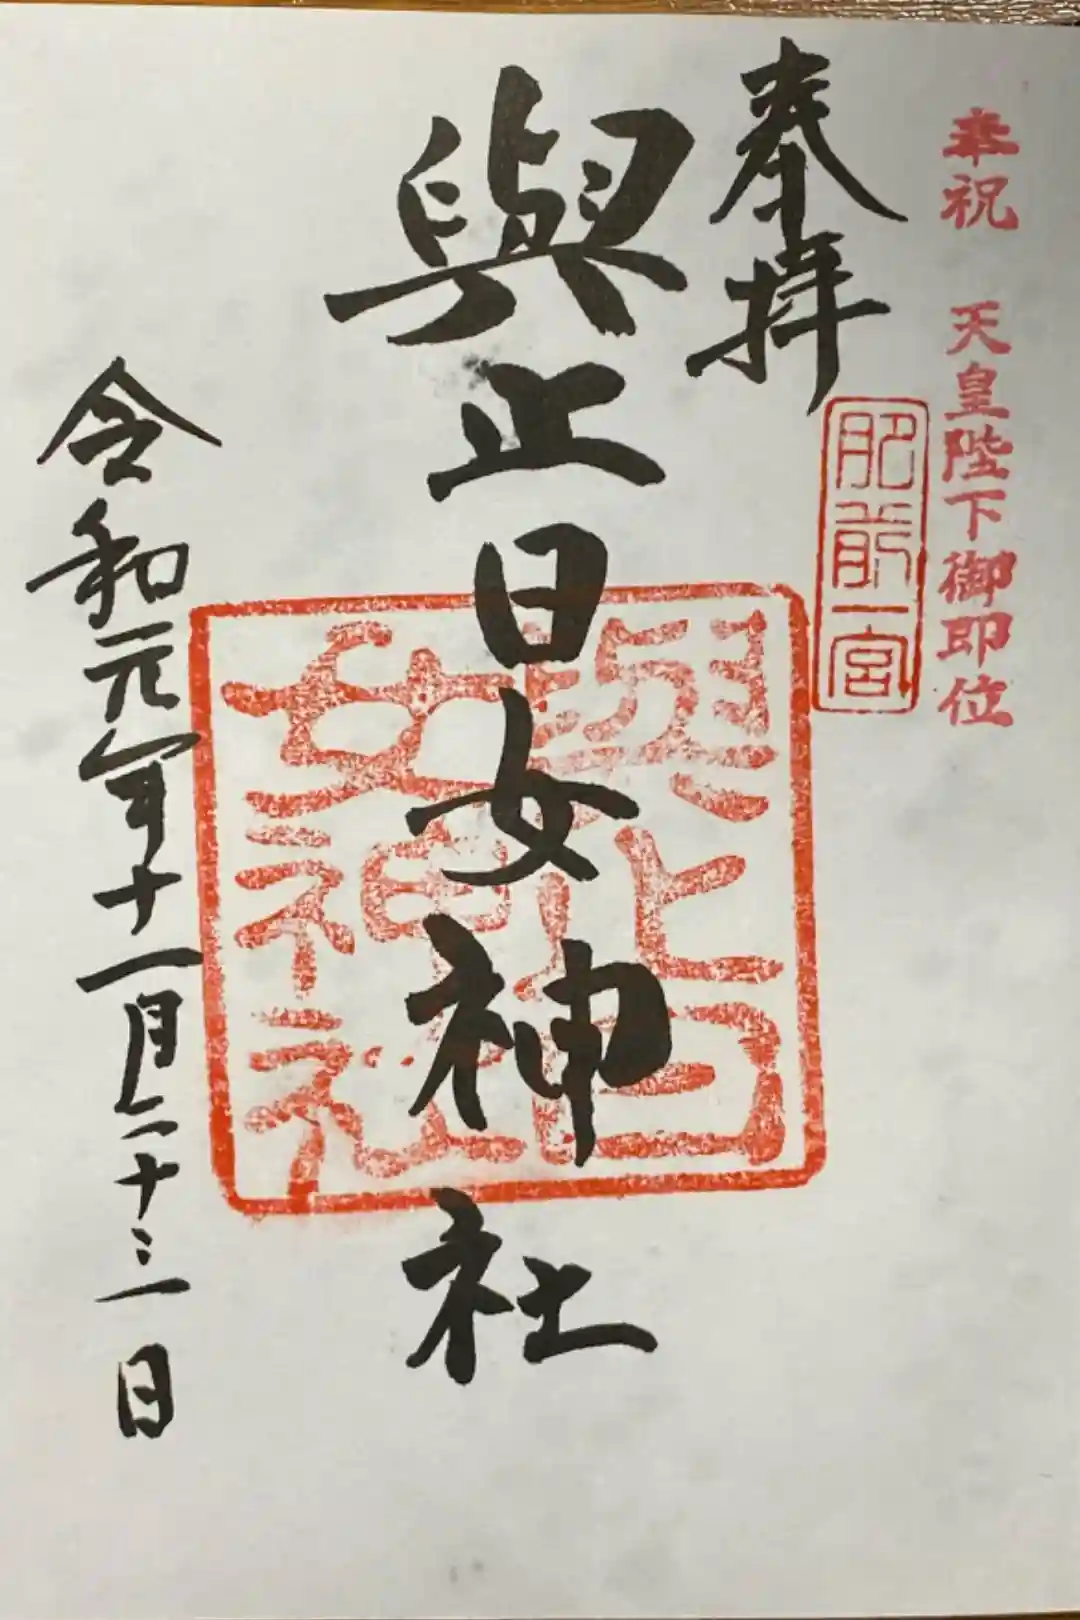 奉祝 天皇陛下御即位
肥前一宮
奉拝
與止日女神社
與止日女神社
令和元年十一月二十三日